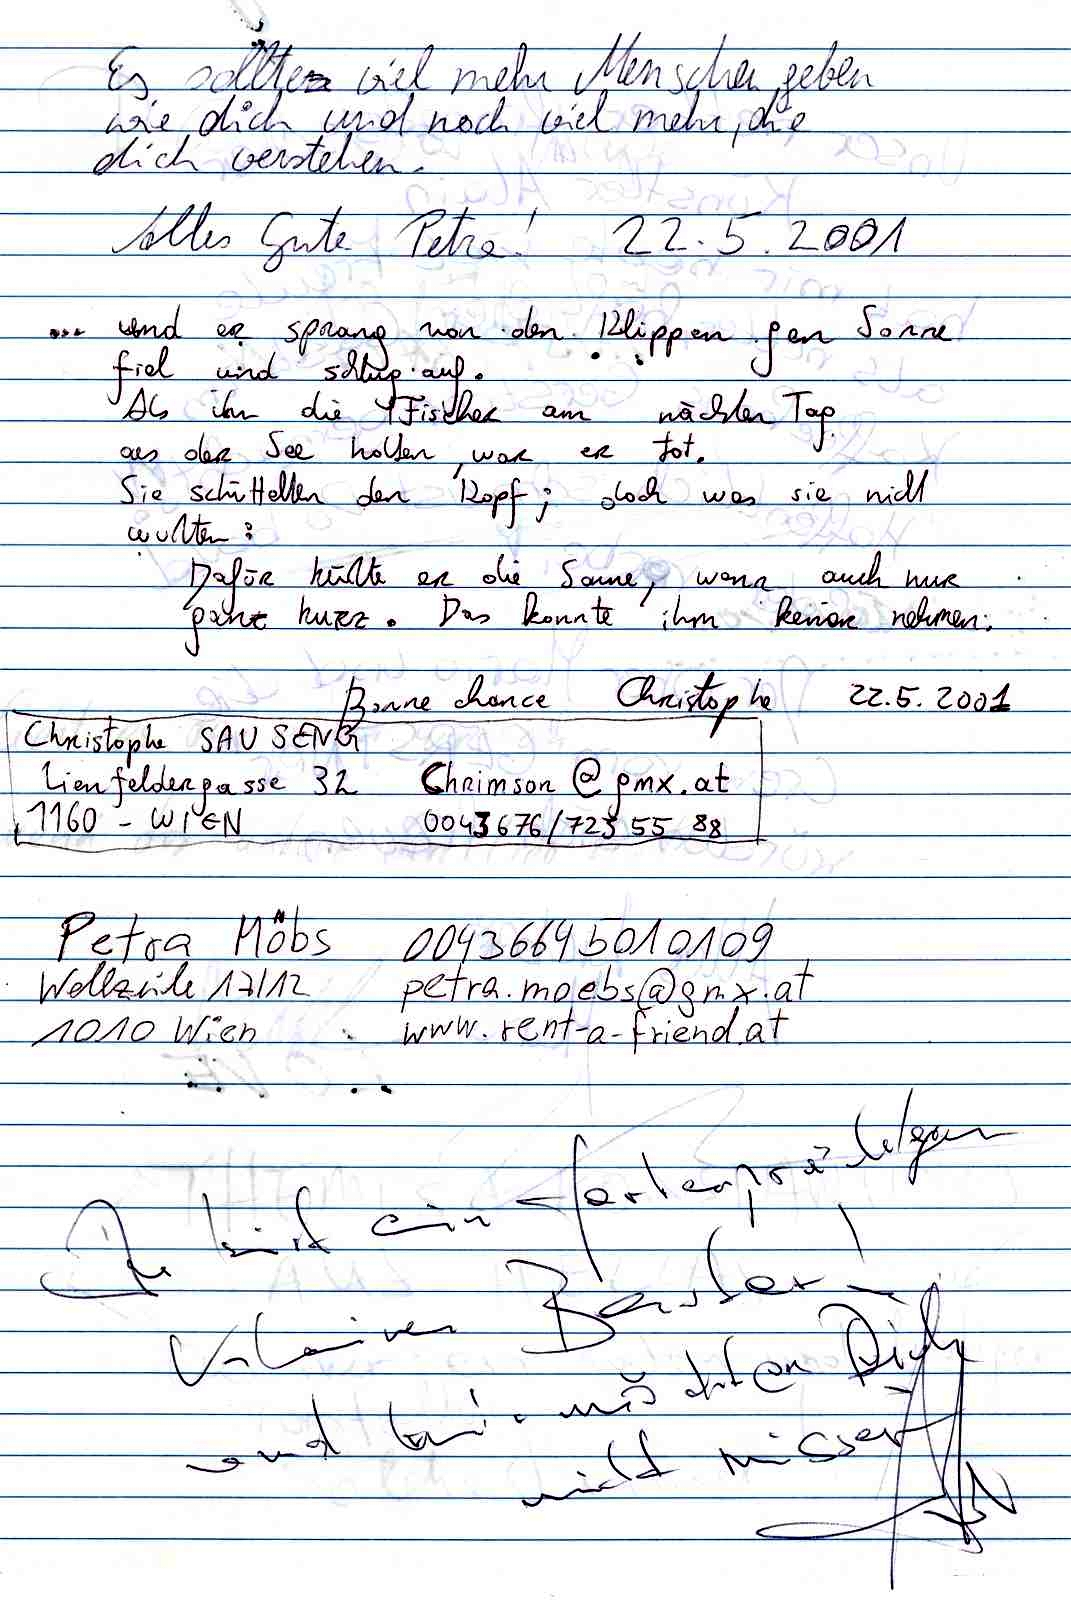 Es sollte viel mehr Menschen geben
wie dich und noch viel mehr, die
dich verstehen.
Alles Gute Petra! 22.5.2001
... und er sprang von den Klippen gen Sonne
fiel und schlug auf.
Als ihn die Fischer am nächsten Tag
aus der See holten, war er tot.
Sie schüttelten den Kopf; doch was sie nicht
wußten:
Dafür küßte er die Sonne, wenn auch nur
ganz kurz. Das konnte ihm keiner nehmen.
Bonne chance Christophe 22.5.2001
Christophe SAUSENG
Lienfeldergasse 32 Chrimson@gmx.at
1160 - WIEN 0043676/723 55 88
Petra Möbs 00436645010109
Wollzeile 17/12 petra.moebs@gmx.at
1010 Wien www.rent-a-friend.at
Du bist ein
und wir möchten Dich
nicht missen